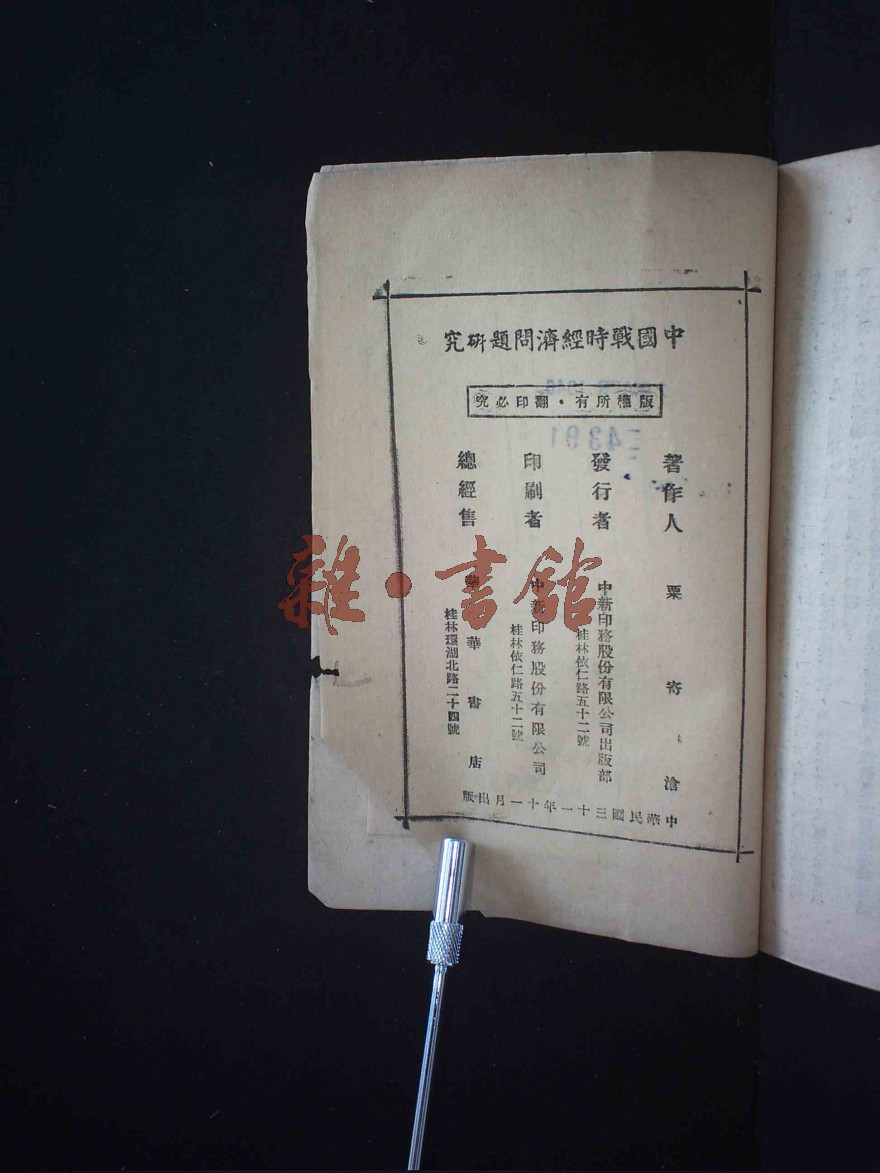 中國戰時經濟問題研究
版權所有·翻印必究
著作人 粟寄滄
發行者 中新印務股份有限公司出版部
桂林依仁路五十二號
印刷者 中新印務股份有限公司
桂林依仁路五十二號
總經售 華書店
桂林環湖北路二十四號
中華民國三十一年十一月出版
雜·書館